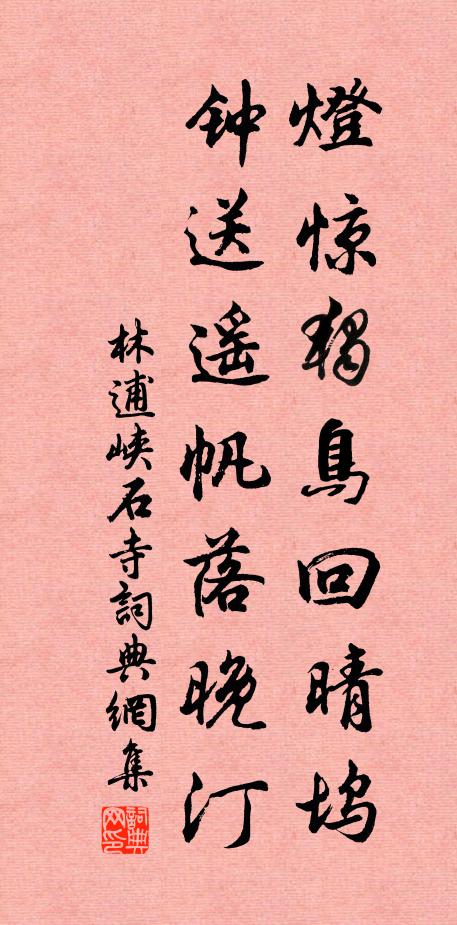 燈惊独鳥回晴坞
钟送遥帆落晚汀
林逋峡石寺詞典網集
詞典网印